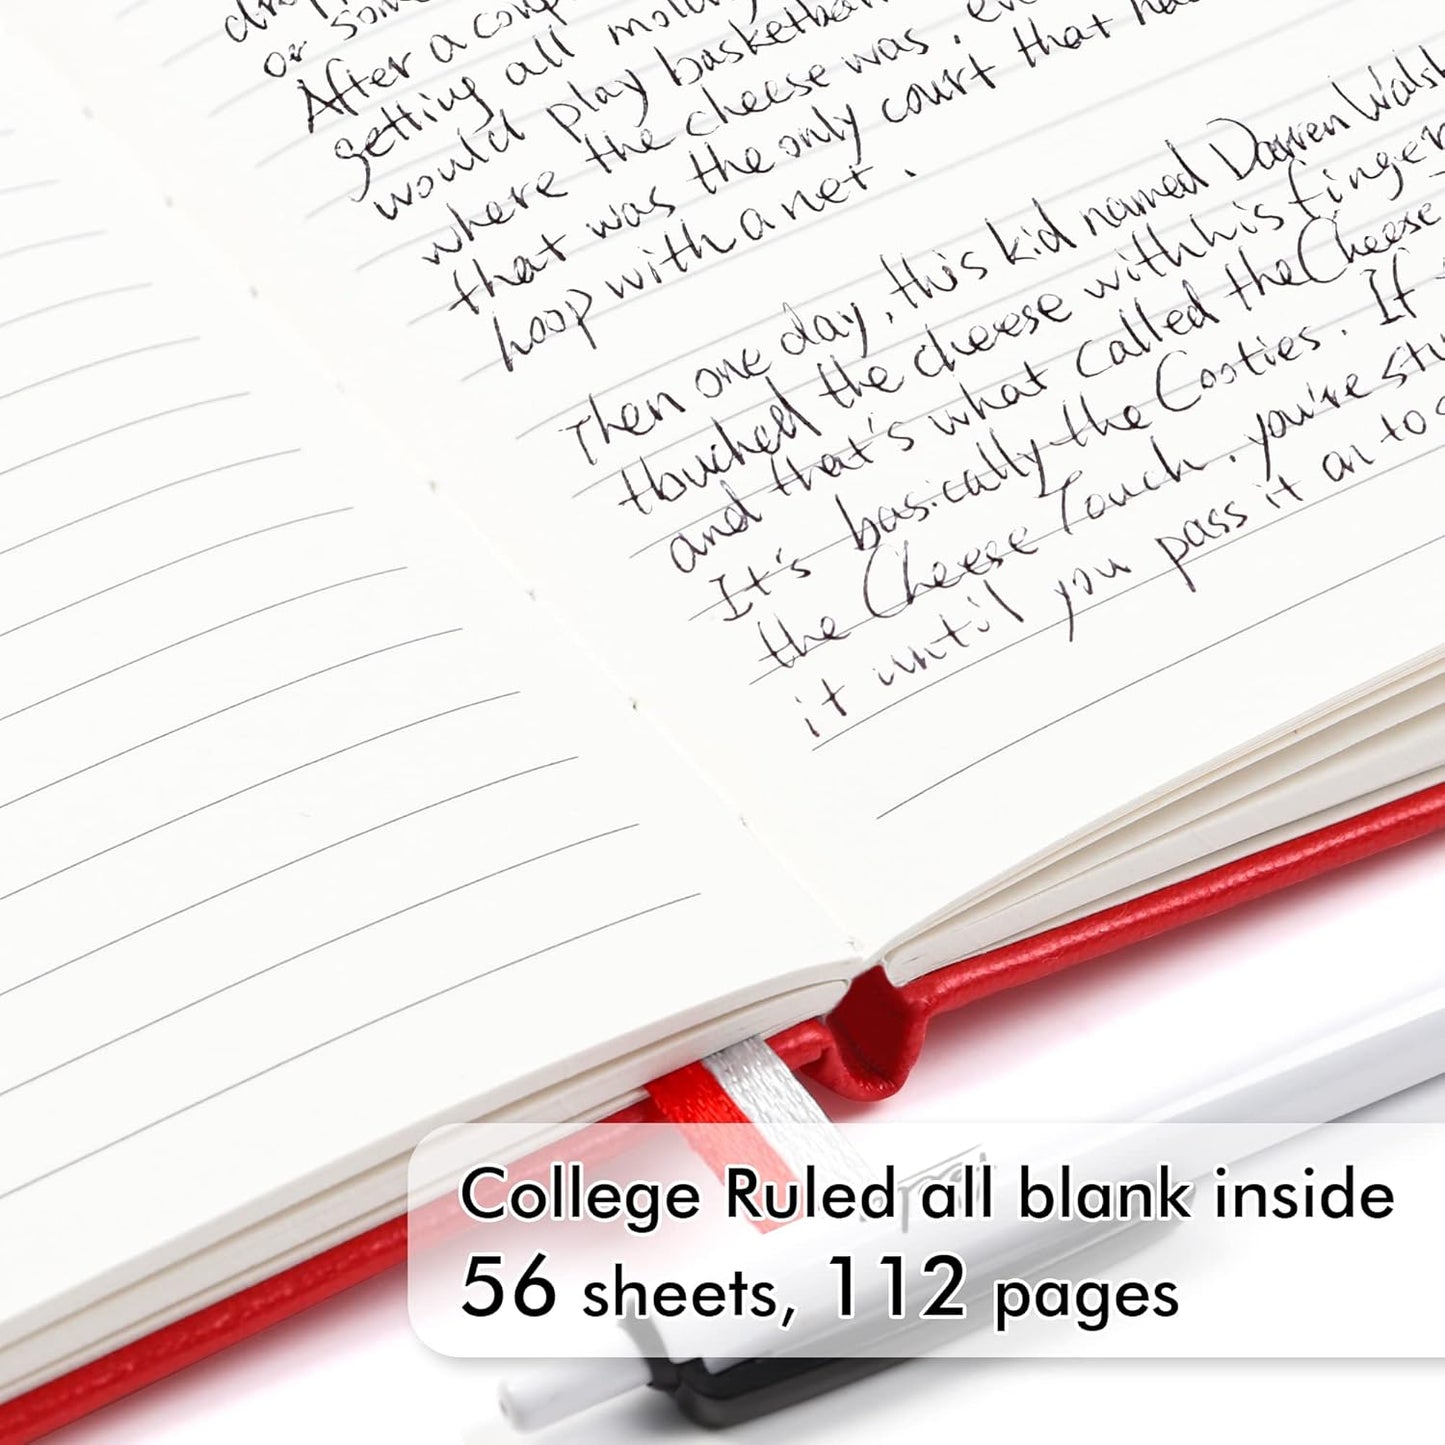 or some
After a coup
getting all mold
would play basketba
where the cheese was. ev
that was the only court that ha
hoop with a net.
Then one day, this kid named Darren Walsh
touched the cheese with his finger
and that's what called the Cheese
It's basically the Cooties. If
the Cheese Touch. you're stu
it until you pass it on to s
College Ruled all blank inside
56 sheets, 112 pages